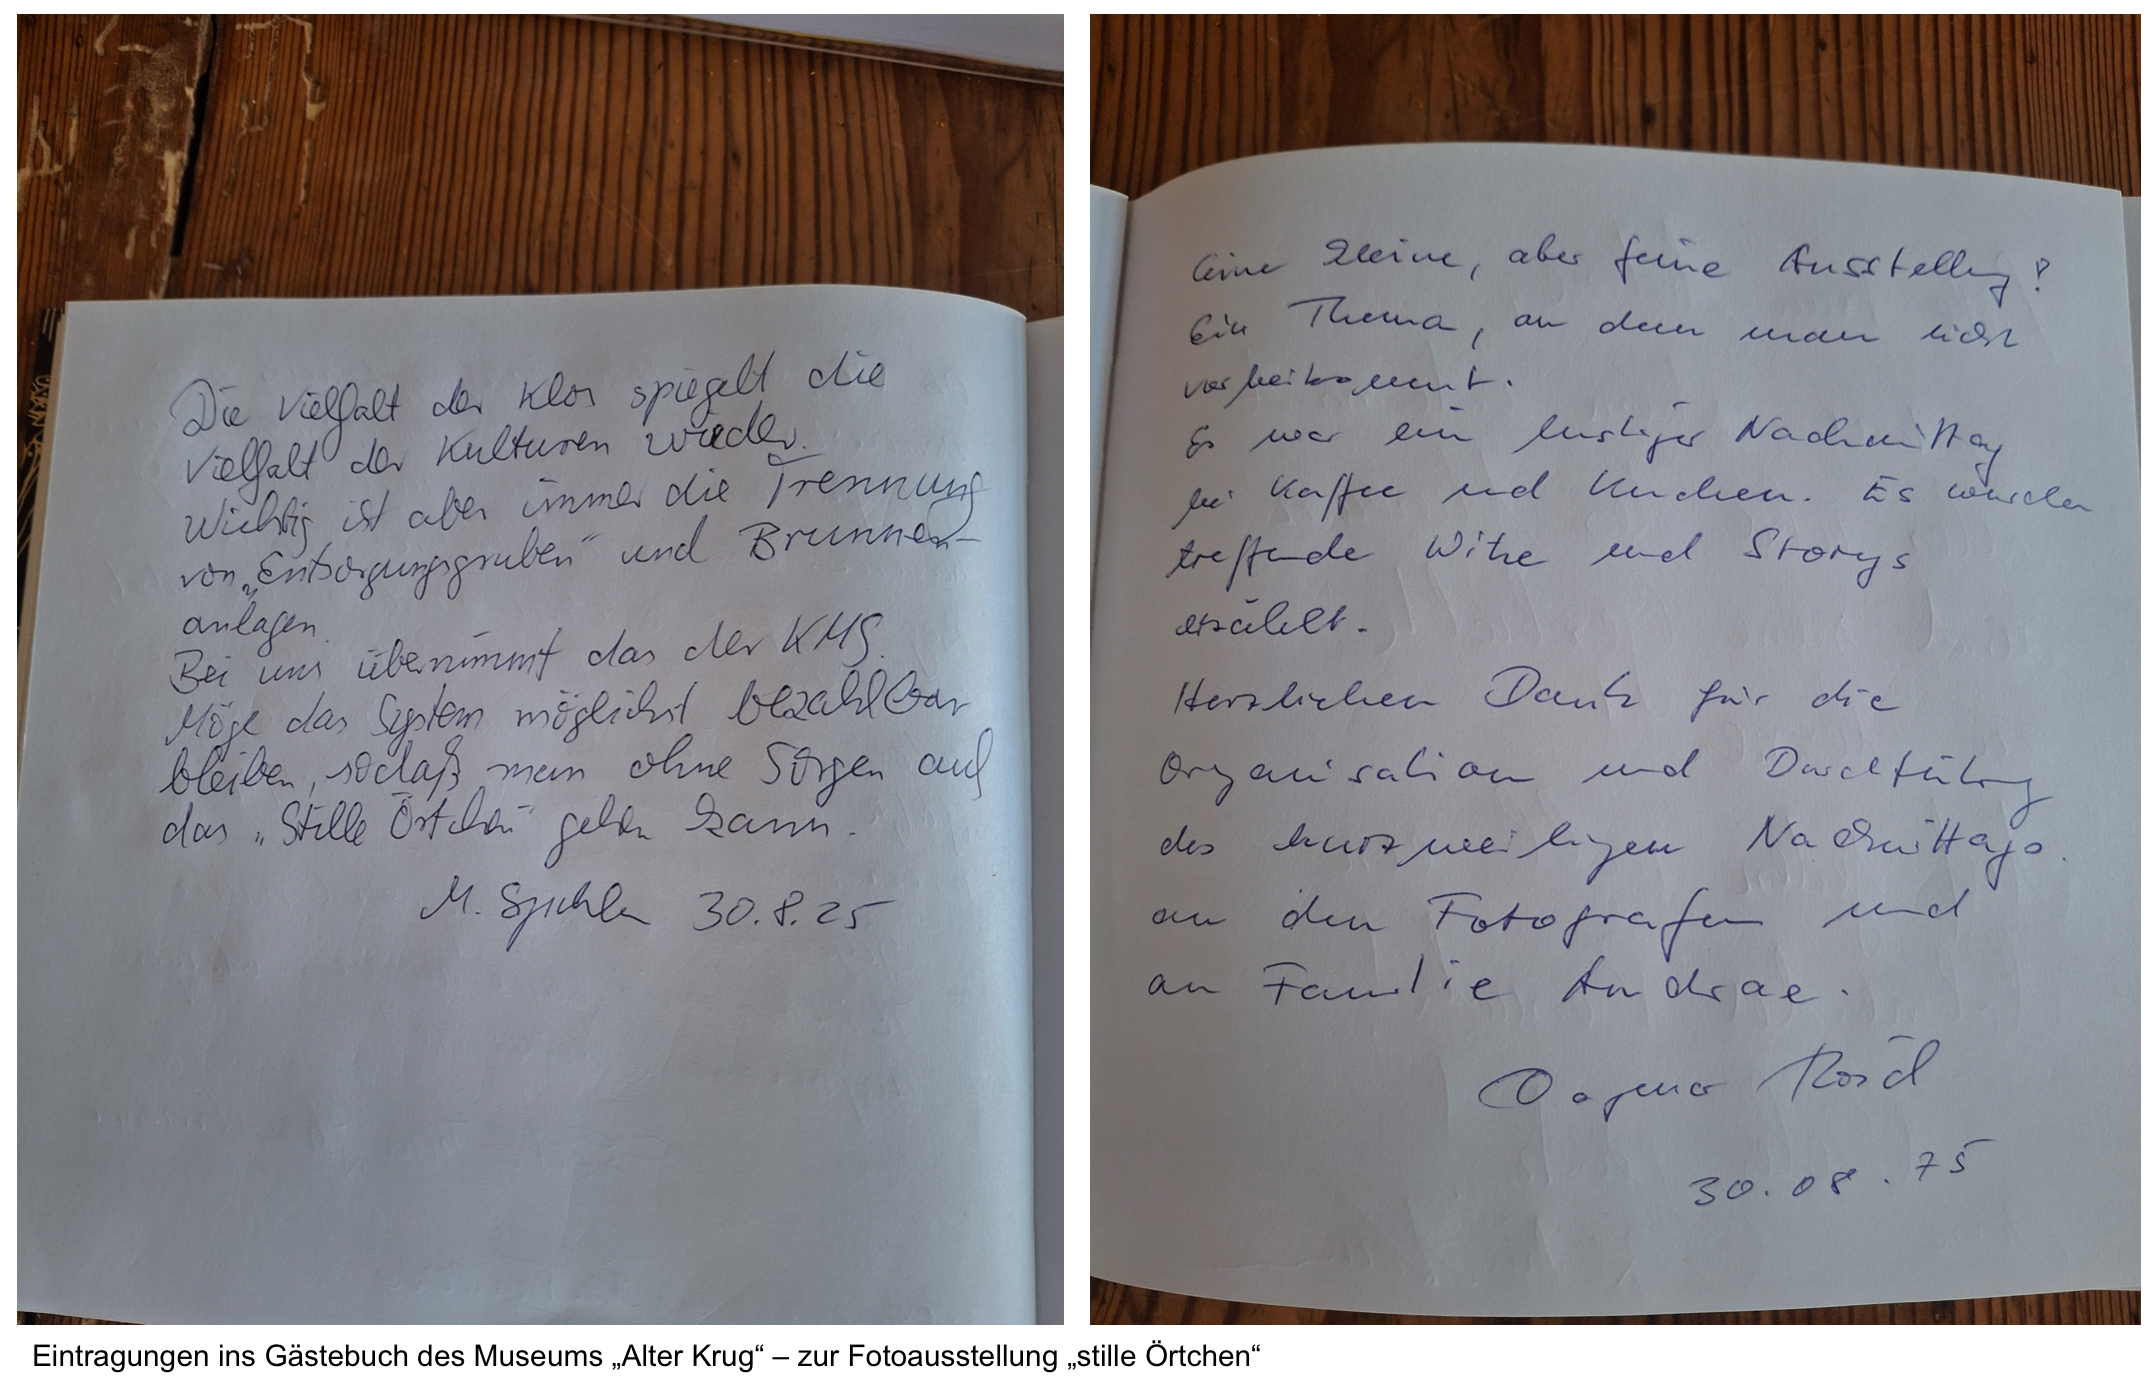 Die Vielfalt der Klos spiegelt die
Vielfalt der Kulturen wieder.
Wichtig ist aber immer die Trennung
von „Entsorgungsgruben“ und Brunnen-
anlagen.
Bei uns übernimmt das der KMS.
Möge das System möglichst bezahlbar
bleiben, sodaß man ohne Sorgen auf
das „Stille Örtchen“ gehen kann.
M. 30.8.25
Eine kleine, aber feine Ausstellung!
Ein Thema, an dem man nicht
vorbeikommt.
Es war ein lustiger Nachmittag
bei Kaffee und Kuchen. Es wurden
treffende Witze und Storys
erzählt.
Herzlichen Dank für die
Organisation und Durchführung
des kurzweiligen Nachmittags
an den Fotografen und
an Familie Andrae.
Dagmar
30.08.25
Eintragungen ins Gästebuch des Museums „Alter Krug“ – zur Fotoausstellung „stille Örtchen“